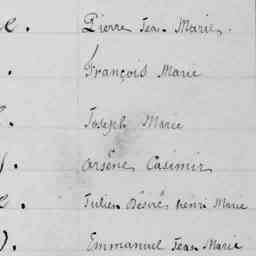 e. Pierre Jean Marie.
. François Marie
. Joseph Marie
. Arsène Casimir
e. Julien Désiré henri Marie
). Emmanuel Jean Marie